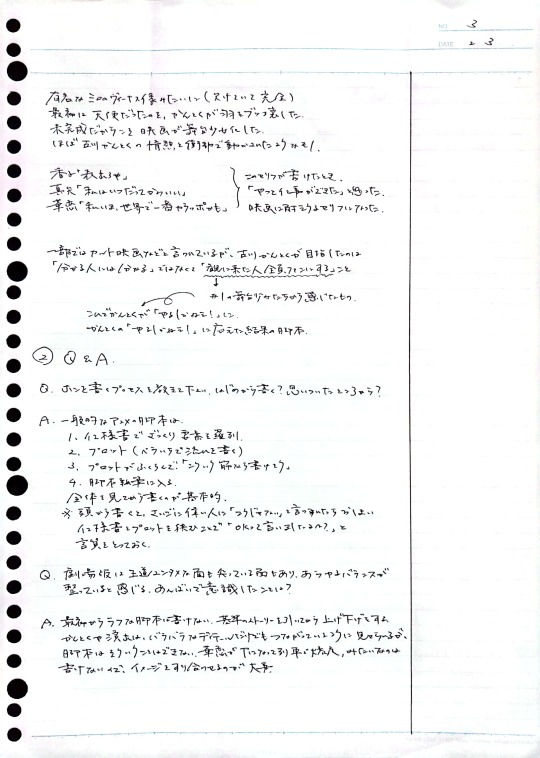 NO. 3
DATE 2 3
有名なミロのヴィーナス像みたいに(欠けていて完全)
最初に天使だったのを、かんとくが羽をブッ壊した.
未完成だからこを映画が舞台少女にした.
ほぼ古川かんとくの情熱と衝動で動かされたようなモノ.
香子「表出ろや」
真矢「私はいつだってかわいい」
華恋「私は、世界で一番
このセリフが書けたとき、
「やっと仕事ができた」と思った.
映画に耐えうるセリフになった.
一部ではカルト映画などと言われているが、古川かんとくが目指したのは
「分かる人には分かる」ではなくて「観に来た人全員ファンにする」こと
#1の舞台少女たちから感じたもの.
これでかんとくが「やるしかねえ!」に.
かんとくの「やるしかねえ!」に応えた結果の脚本.
② Q & A.
Q. ホンを書くプロセスを教えて下さい. はじめから書く?思いついたところから?
A. 一般的なアニメの脚本は.
1. 仕様書でざっくり要素を羅列.
2. プロット(ペライチで流れを書く)
3. プロットがふくらんで「こういう筋なら書けそう」
4. 脚本執筆に入る.
全体を見てから書くのが基本的.
※ 頭から書くと、さいごに偉い人に「つまんない」と言われたら
仕様書とプロットを挟むことで「OKって言いましたよね?」と
言質をとっておく.
Q. 劇場版は王道エンタメな面も尖っている面もあり、あらゆるバランスが
整っていると感じる. あんばいで意識したことは?
A. 最初からラフな脚本は書けない. 基本のストーリーを引いてから上げ下げをする
かんとくや演出は、バラバラなディテールだけでもつながっているように見せられるが、
脚本はそういうことはできない. 華恋が 列車で みたいなのは
書けないので、イメージをすり合わせるのが大事.